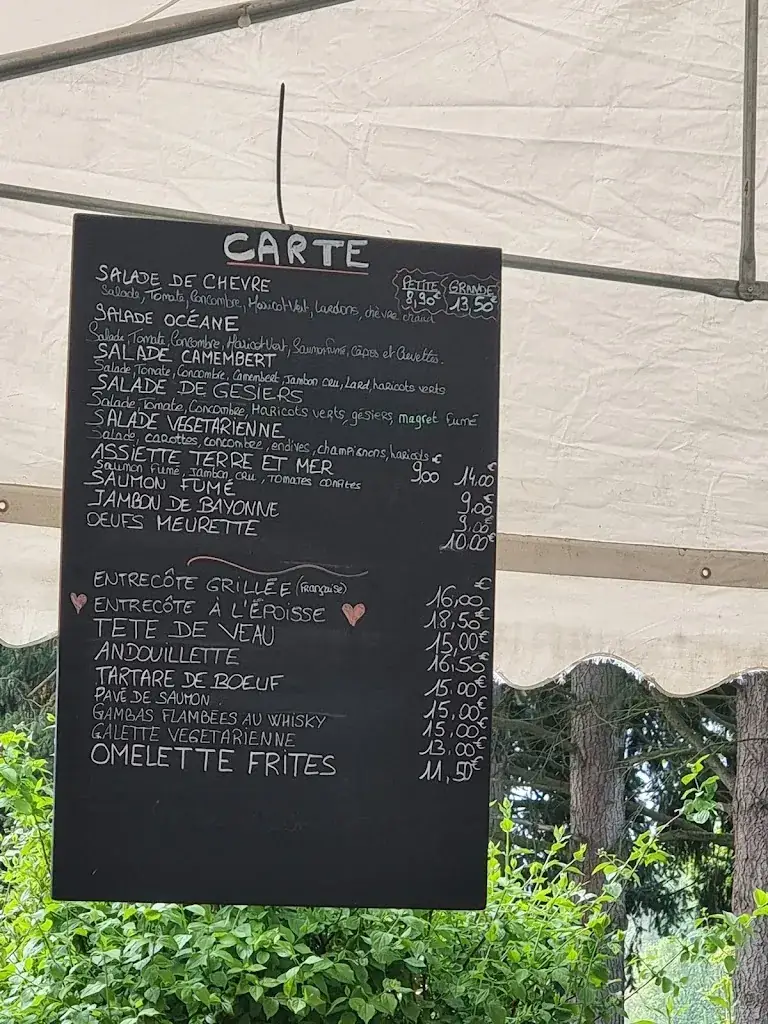 CARTE
SALADE DE CHEVRE PETITE GRANDE
Salade, Tomate, Concombre, Haricot Vert, Lardons, chèvre chaud 8,90€ 13,50€
SALADE OCÉANE
Salade, Tomate, Concombre, Haricot Vert, Saumon Fumé, Câpres et Crevettes.
SALADE CAMEMBERT
Salade, Tomate, Concombre, Camembert, Jambon cru, Lard, haricots verts
SALADE DE GESIERS
Salade, Tomate, Concombre, Haricots verts, gésiers, magret fumé
SALADE VEGETARIENNE
Salade, carottes, concombre, endives, champignons, haricots
ASSIETTE TERRE ET MER 9,00€ 14,00€
Saumon fumé, Jambon cru, Tomates confites
SAUMON FUMÉ 9,00€
JAMBON DE BAYONNE 9,00€
OEUFS MEURETTE 10,00€
ENTRECÔTE GRILLÉE (Française) 16,00€
ENTRECÔTE À L'ÉPOISSE 18,50€
TETE DE VEAU 15,00€
ANDOUILLETTE 16,50€
TARTARE DE BOEUF 15,00€
PAVÉ DE SAUMON 15,00€
GAMBAS FLAMBÉES AU WHISKY 15,00€
GALETTE VEGETARIENNE 13,00€
OMELETTE FRITES 11,50€